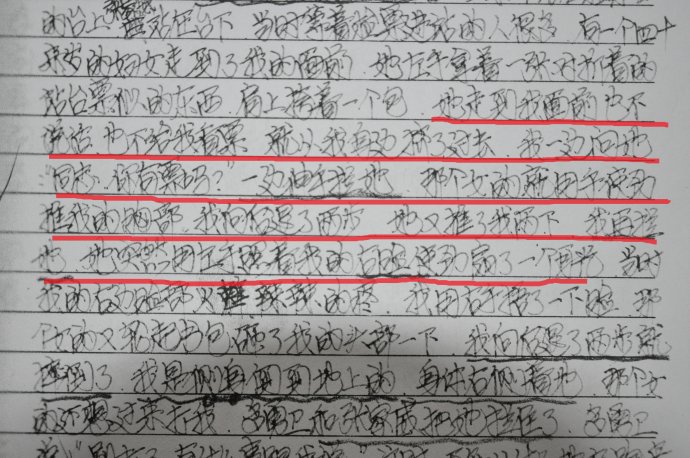 的台上 站在台下 当时等着验票进站的人很多 有一个四十
我岁的妇女走到了我的面前 她左手拿着一张对折着的
站台票似的东西 肩上挎着一个包 她走到我面前也不
说话 也不给我看票 就从我身边 了过去 我一边问她
"同志,你有票吗?" 一边伸手拦她 那个女的就用手使劲
推我的胸部 我向后退了两步 她又推了我两下 我再拦
她 她突然用左手照着我的右脸使劲扇了一个耳光 当时
我的右边脸部火辣辣的疼 我用右手捂了一个脸 那
个女的又抡起书包砸了我的头部一下 我向后退了两步就
摔倒了 我是侧身倒到地上的 身体右侧着地 那个女
的还要过来打我 把她拦住了